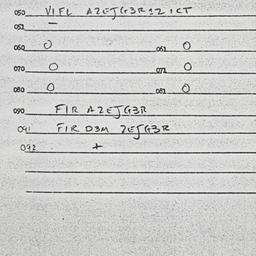 050 VIFL AZEJG3R12 1CT
051 —
060 O 061 O
070 O 071 O
080 O 081 O
090 FIR AZEJG3R
091 FIR D3M ZEJG3R
092 +